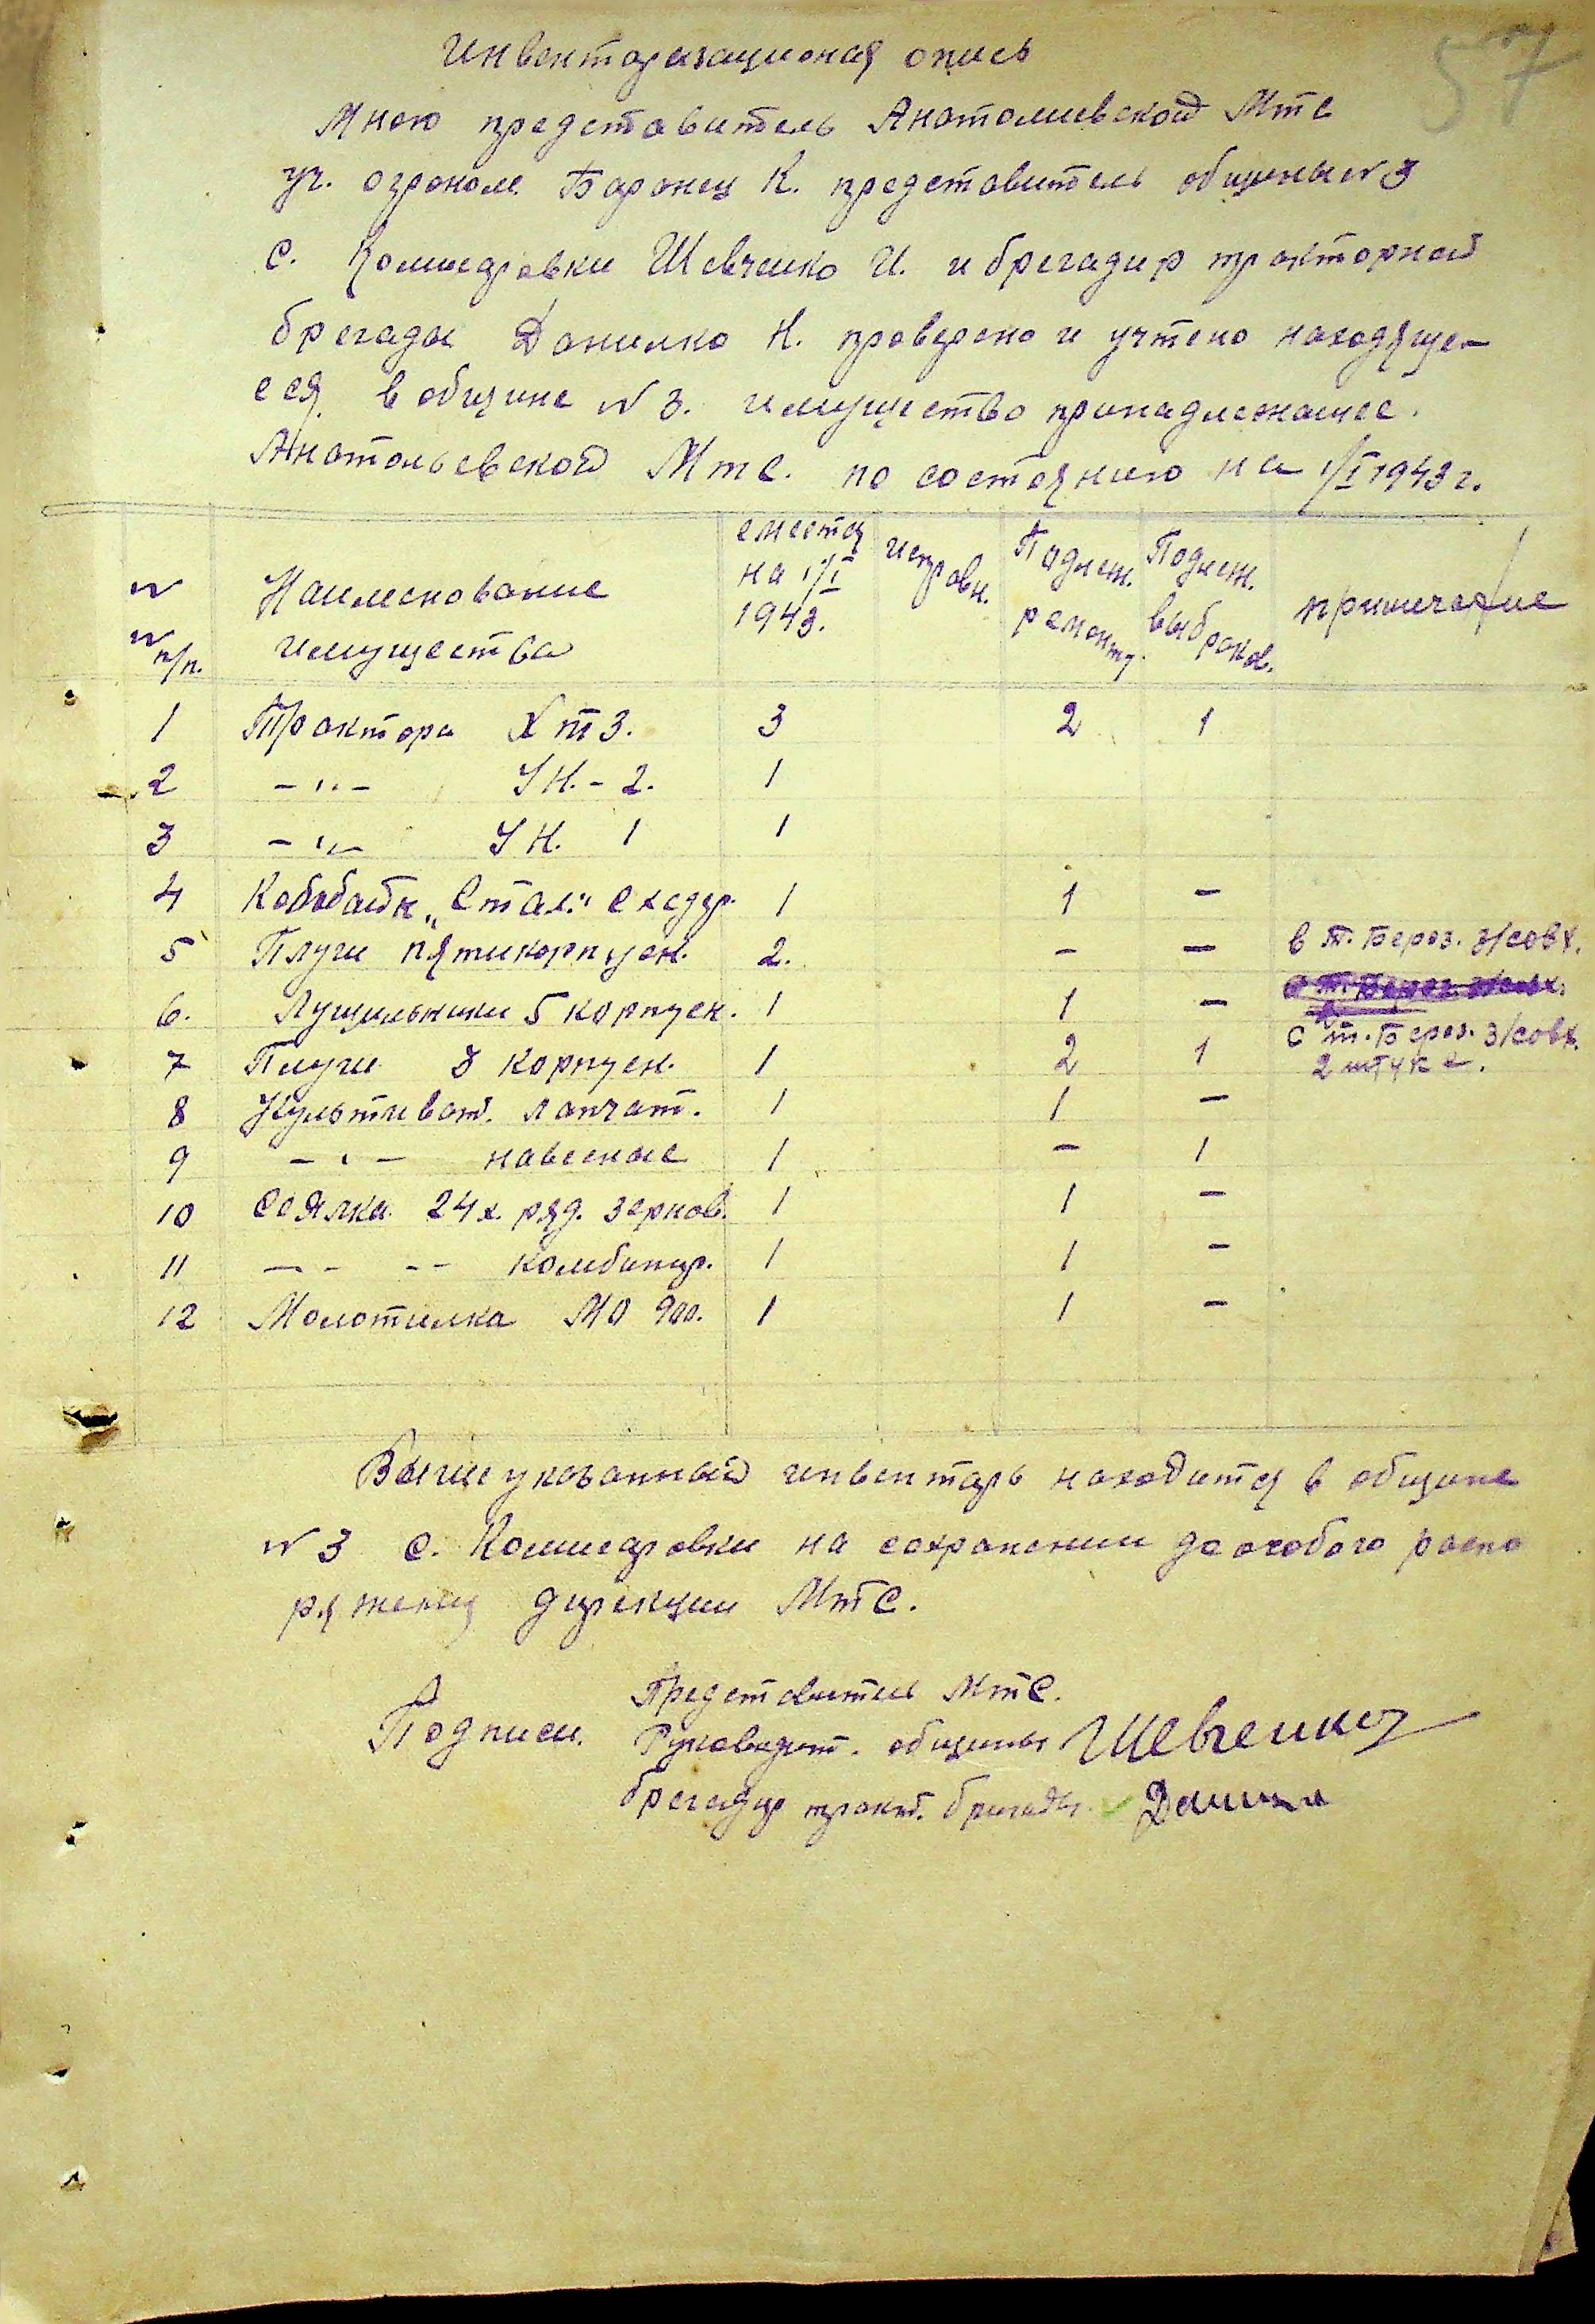 57
Инвентаризационая опись
Мною представитель Анатолиевской Мтс
уч. агроном Баранец К. представитель общины №3
с. Комиссаровки Шевченко И. и брегадир тракторной
брегады Данилко Н. проверено и учтено находяще-
еся в общине №3. имущество принадлежащее.
Анатольевской Мтс. по состоянию на 1/I 1943 г.
№ № п/п. Наименование имущества имеется на 1/I 1943. исправн. Подлеж. ремонту. Подлеж. выбраков. примечание
1 Трактора ХТЗ. 3 2 1
2 -"- УН.-2. 1
3 -"- УН. 1 1
4 "Стал." 1 1 -
5 Плуги пятикорпусн. 2. - - в т. Берез. з/совх.
6. Лущильники 5 корпусн. 1 1 -
7 Плуги 3 корпусн. 1 2 1 с т. Берез. з/совх.
2 штуке.
8 Культиват. лапчат. 1 1 -
9 -"- навесные 1 - 1
10 Сеялка 24х. ряд. зернов. 1 1 -
11 -- -- комбинир. 1 1 -
12 Молотилка МО 900. 1 1 -
Выше указанный инвентарь находится в общине
№3 с. Комиссаровки на сохранении до особого распо
ряжения дирекции МТС.
Подписи. Представитель МТС.
Руководит. общины Шевченко
брегадир тракт. бригады Данилко